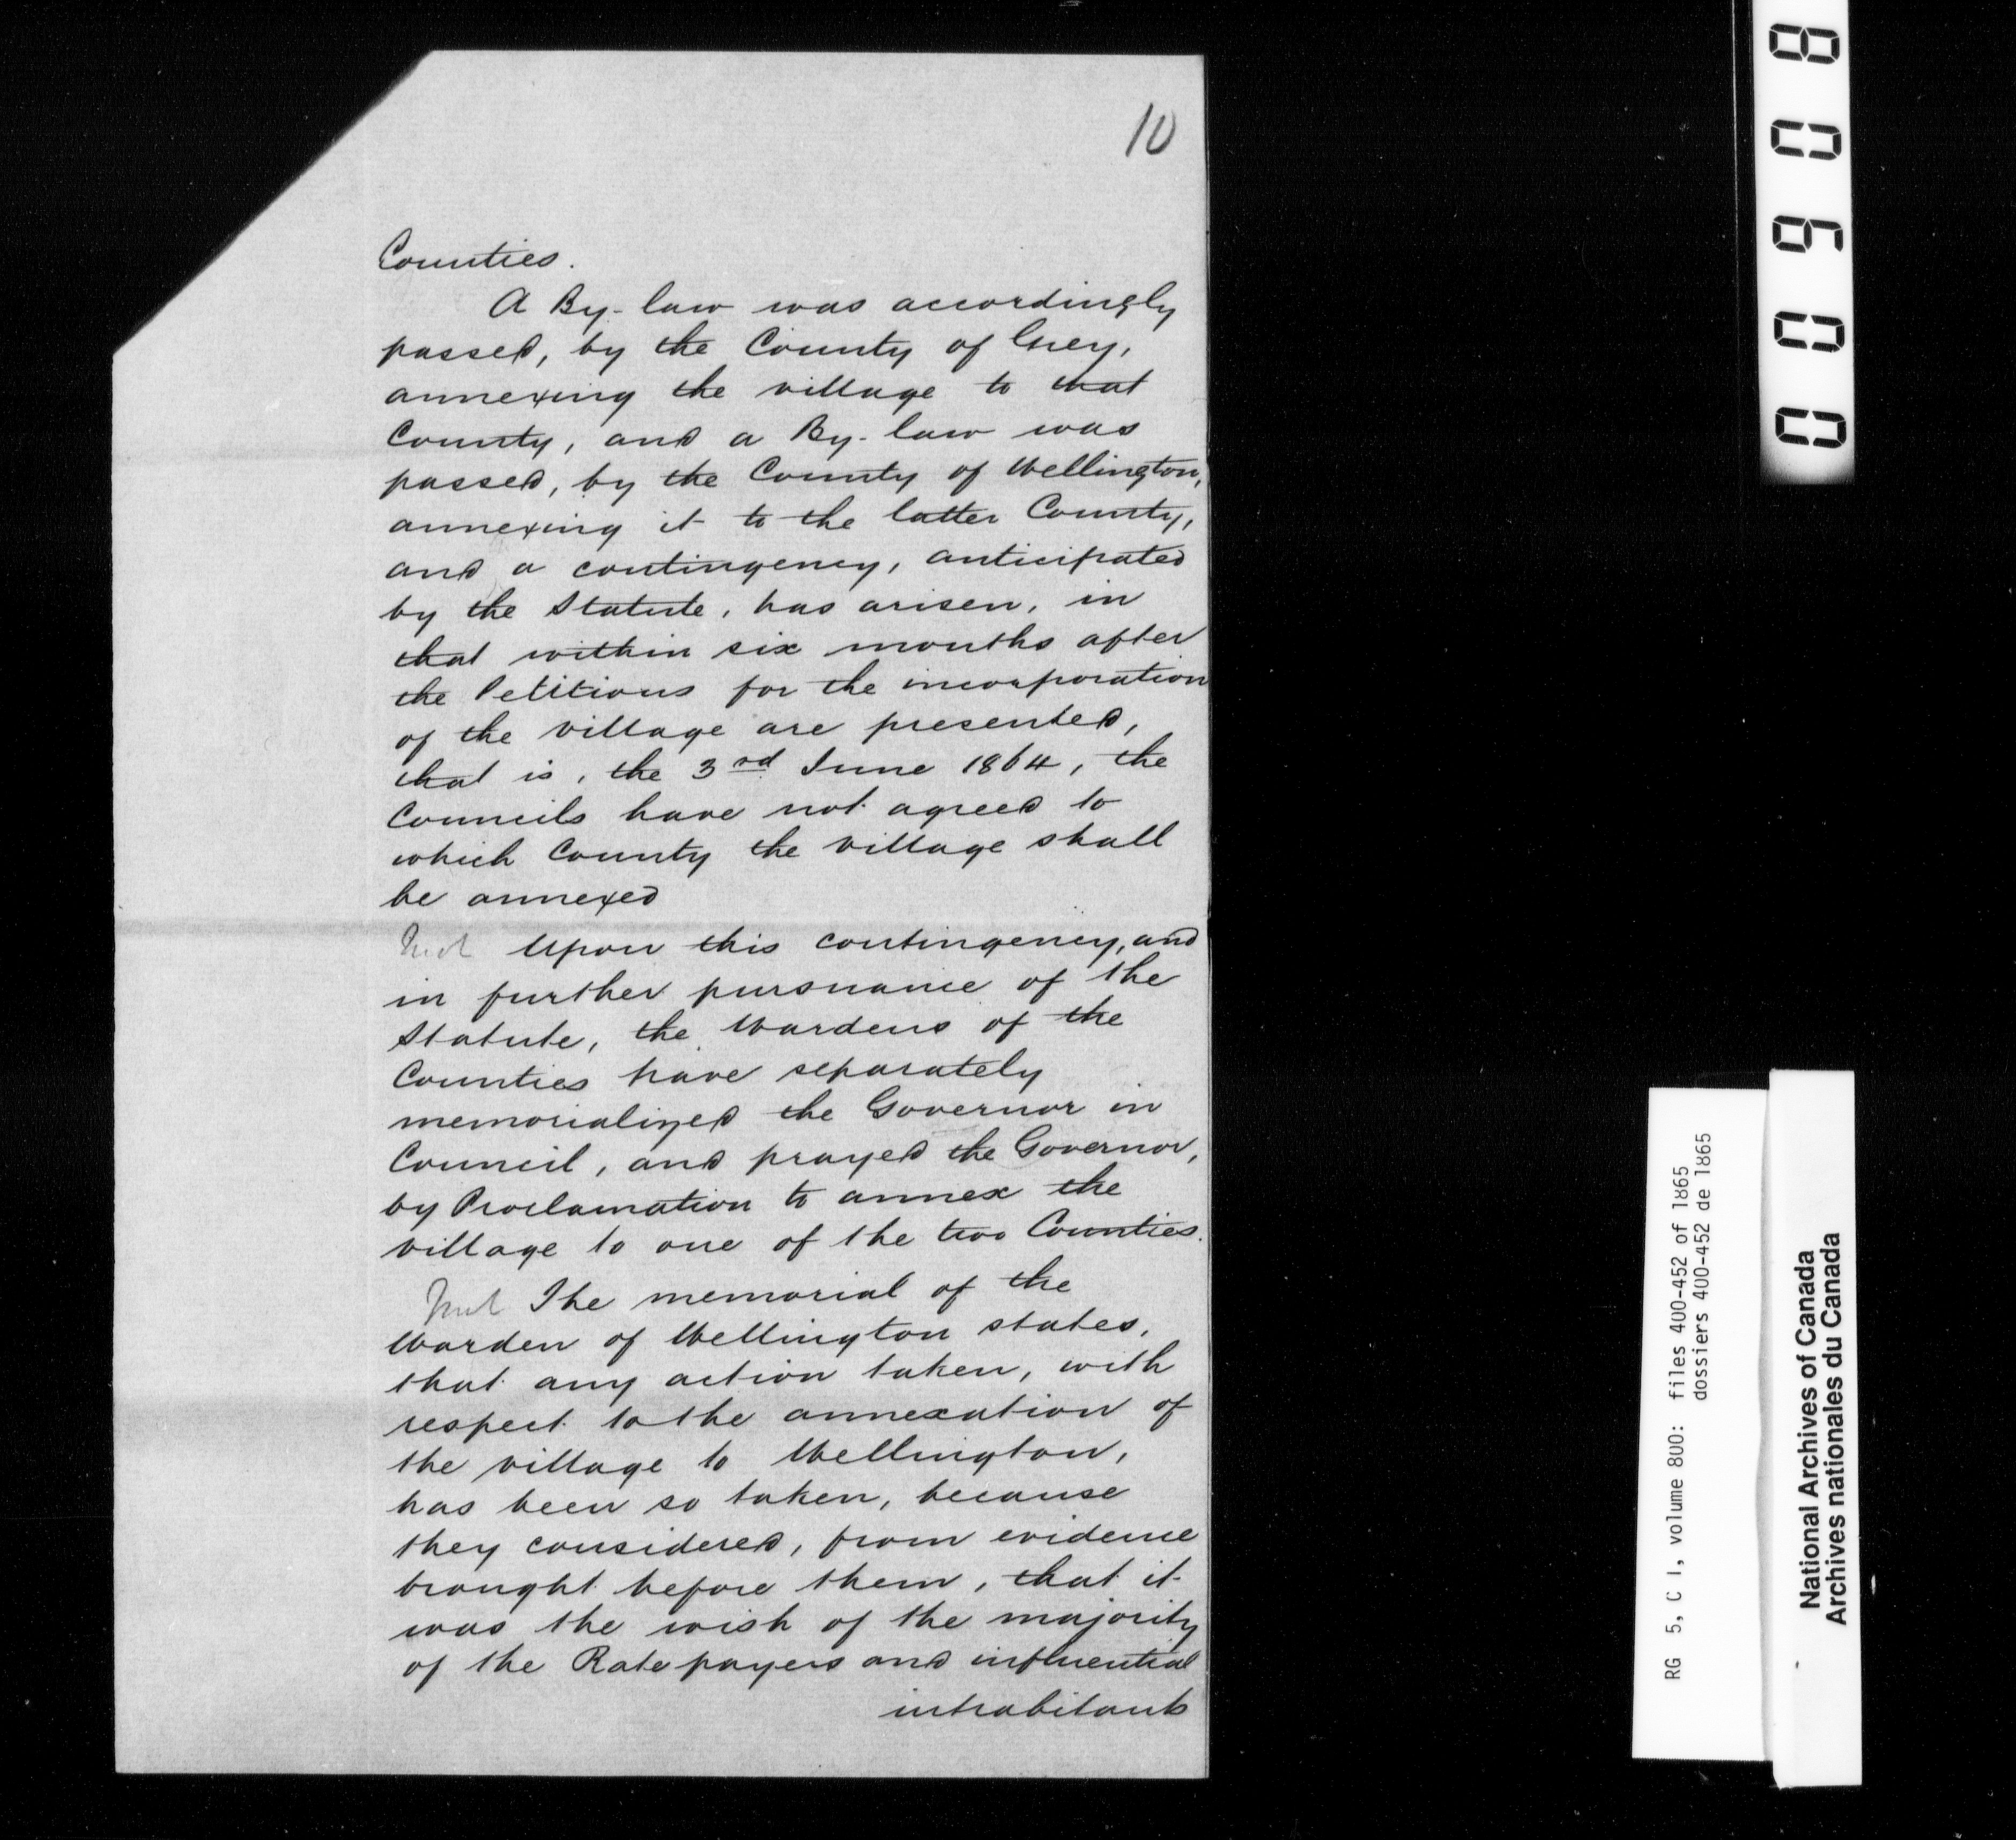 10
Counties.
A By-law was accordingly
passed, by the County of Grey,
annexing the village to that
County, and a By-law was
passed, by the County of Wellington,
annexing it to the latter County,
and a contingency, anticipated
by the Statute, has arisen, in
that within six months after
the Petitions for the incorporation
of the village are presented,
that is, the 3rd June 1864, the
Councils have not agreed to
which County the village shall
be annexed
Upon this contingency, and
in further pursuance of the
Statute, the Wardens of the
Counties have separately
memorialized the Governor in
Council, and prayed the Governor,
by Proclamation to annex the
village to one of the two Counties.
The memorial of the
Warden of Wellington states,
that any action taken, with
respect to the annexation of
the village to Wellington,
has been so taken, because
they considered, from evidence
brought before them, that it
was the wish of the majority
of the Ratepayers and influential
inhabitants
00908
RG 5, C 1, volume 800: files 400-452 of 1865
dossiers 400-452 de 1865
National Archives of Canada
Archives nationales du Canada